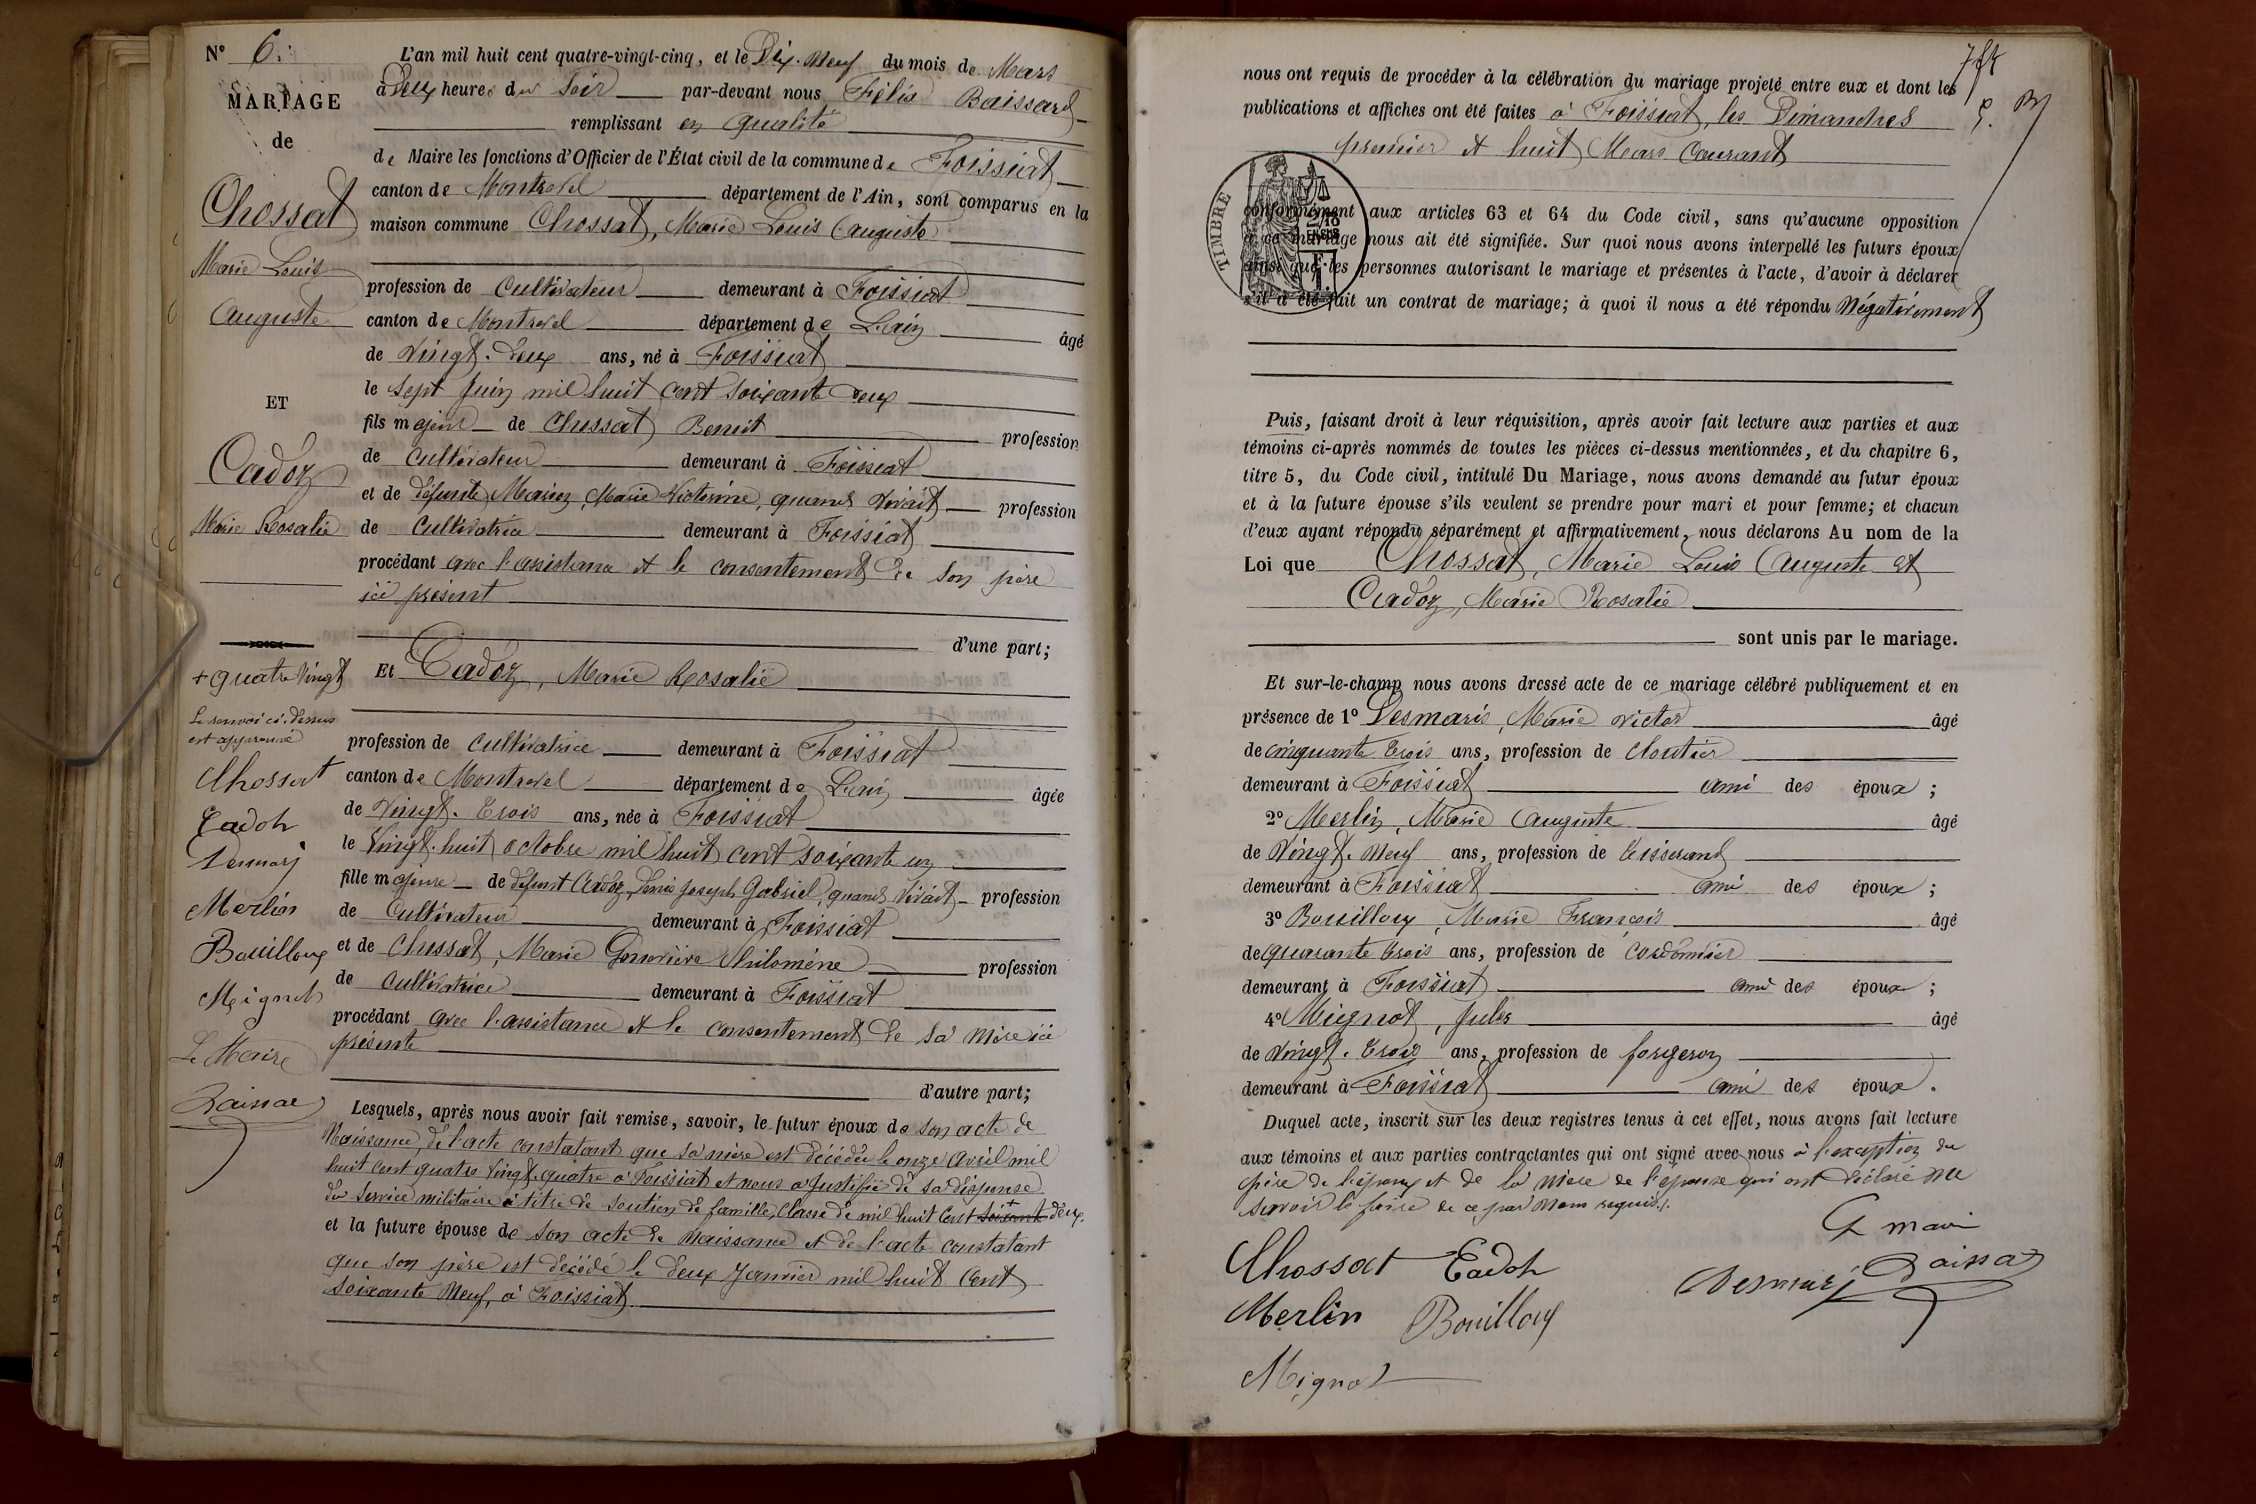 N° 6.
MARIAGE
de
Chossat
Marie Louis
Auguste
ET
Cadoz
Marie Rosalie
+ quatre vingt
Le renvoi ci-dessus
est approuvé
Chossat
Cadoz
Merlin
Bouilloux
Mignot
Le Maire
L'an mil huit cent quatre-vingt-cinq, et le Dix-Neuf du mois de Mars
à Deux heures du Soir par-devant nous Félix
remplissant en qualité
de Maire les fonctions d'Officier de l'État civil de la commune de Foissiat
canton de Montrevel département de l'Ain, sont comparus en la
maison commune Chossat, Marie Louis Auguste
profession de Cultivateur demeurant à Foissiat
canton de Montrevel département de L'ain âgé
de Vingt-deux ans, né à Foissiat
le sept Juin mil huit cent soixante deux
fils majeur de Chossat Benoit profession
de Cultivateur demeurant à Foissiat
et de défunte Marie Victorine, quand vivait profession
de Cultivatrice demeurant à Foissiat
procédant avec l'assistance et le consentement de son père
ici présent
d'une part;
Et Cadoz, Marie Rosalie
profession de Cultivatrice demeurant à Foissiat
canton de Montrevel département de L'ain âgée
de Vingt-trois ans, née à Foissiat
le Vingt-huit octobre mil huit cent soixante un
fille majeure de défunt Cadoz, Denis Joseph Gabriel, quand vivait profession
de Cultivateur demeurant à Foissiat
et de Chossat, Marie Geneviève Philomène profession
de Cultivatrice demeurant à Foissiat
procédant avec l'assistance et le consentement de sa mère ici
présente
d'autre part;
Lesquels, après nous avoir fait remise, savoir, le futur époux de son acte de
Naissance, de l'acte constatant que sa mère est décédée le onze Avril mil
huit cent quatre vingt-quatre à Foissiat et nous a justifié de sa dispense
du Service militaire à titre de Soutien de famille, Classe de mil huit Cent soixante + deux.
et la future épouse de son acte de Naissance et de l'acte constatant
que son père est décédé le deux Janvier mil huit Cent
soixante Neuf, à Foissiat
nous ont requis de procéder à la célébration du mariage projeté entre eux et dont les
publications et affiches ont été faites à Foissiat, les Dimanches
premier et huit Mars Courant
TIMBRE
conformément aux articles 63 et 64 du Code civil, sans qu'aucune opposition
à ce mariage nous ait été signifiée. Sur quoi nous avons interpellé les futurs époux
ainsi que les personnes autorisant le mariage et présentes à l'acte, d'avoir à déclarer
s'il a été fait un contrat de mariage; à quoi il nous a été répondu Négativement
Puis, faisant droit à leur réquisition, après avoir fait lecture aux parties et aux
témoins ci-après nommés de toutes les pièces ci-dessus mentionnées, et du chapitre 6,
titre 5, du Code civil, intitulé Du Mariage, nous avons demandé au futur époux
et à la future épouse s'ils veulent se prendre pour mari et pour femme; et chacun
d'eux ayant répondu séparément et affirmativement, nous déclarons Au nom de la
Loi que Chossat, Marie Louis Auguste et
Cadoz, Marie Rosalie
sont unis par le mariage.
Et sur-le-champ nous avons dressé acte de ce mariage célébré publiquement et en
présence de 1° Desmaris, Marie Victor âgé
de cinquante trois ans, profession de Cloutier
demeurant à Foissiat ami des époux ;
2° Merlin, Marie Auguste âgé
de Vingt-Neuf ans, profession de tisserand
demeurant à Foissiat ami des époux ;
3° Bouilloux, Marie François âgé
de quarante trois ans, profession de Cordonnier
demeurant à Foissiat ami des époux ;
4° Mignot, Jules âgé
de Vingt-trois ans, profession de forgeron
demeurant à Foissiat ami des époux.
Duquel acte, inscrit sur les deux registres tenus à cet effet, nous avons fait lecture
aux témoins et aux parties contractantes qui ont signé avec nous à l'exception du
père de l'époux et de la Mère de l'épouse qui ont déclaré ne
savoir le faire de ce par Nous requis.
Chossat Cadoz
Merlin Bouilloux
Mignot